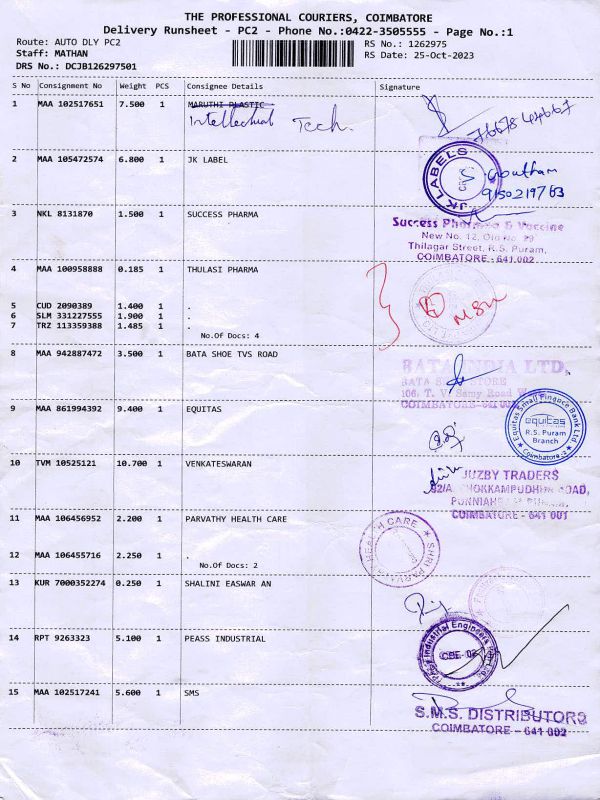 THE PROFESSIONAL COURIERS, COIMBATORE
Delivery Runsheet - PC2 - Phone No.:0422-3505555 - Page No.:1
Route: AUTO DLY PC2
RS No.: 1262975
Staff: MATHAN
RS Date: 25-Oct-2023
DRS No.: DCJB126297501
S No Consignment No Weight PCS Consignee Details Signature
1 MAA 102517651 7.500 1 MARUTHI PLASTIC
Intellectual Tech.
2 MAA 105472574 6.800 1 JK LABEL
JK LABELS
Goutham
9150219763
3 NKL 8131870 1.500 1 SUCCESS PHARMA
Success Pharma & Vaccine
New No. 12, Old No. 29
Thilagar Street, R.S. Puram,
COIMBATORE - 641 002
4 MAA 100958888 0.185 1 THULASI PHARMA
5 CUD 2090389 1.400 1 .
6 SLM 331227555 1.900 1 .
7 TRZ 113359388 1.485 1 .
No.Of Docs: 4
8 MAA 942887472 3.500 1 BATA SHOE TVS ROAD
BATA INDIA LTD.
BATA STORE
106, T. V. Samy Road
COIMBATORE
9 MAA 861994392 9.400 1 EQUITAS
Equitas Small Finance Bank Ltd.
equitas
R.S. Puram
Branch
Coimbatore -2
10 TVM 10525121 10.700 1 VENKATESWARAN
JUZBY TRADERS
ROAD,
COIMBATORE - 641 001
11 MAA 106456952 2.200 1 PARVATHY HEALTH CARE
SHRI PARVATHY HEALTH CARE
12 MAA 106455716 2.250 1 .
No.Of Docs: 2
13 KUR 7000352274 0.250 1 SHALINI EASWAR AN
14 RPT 9263323 5.100 1 PEASS INDUSTRIAL
Industrial Engineers
CBE-02
15 MAA 102517241 5.600 1 SMS
S.M.S. DISTRIBUTORS
COIMBATORE - 641 002